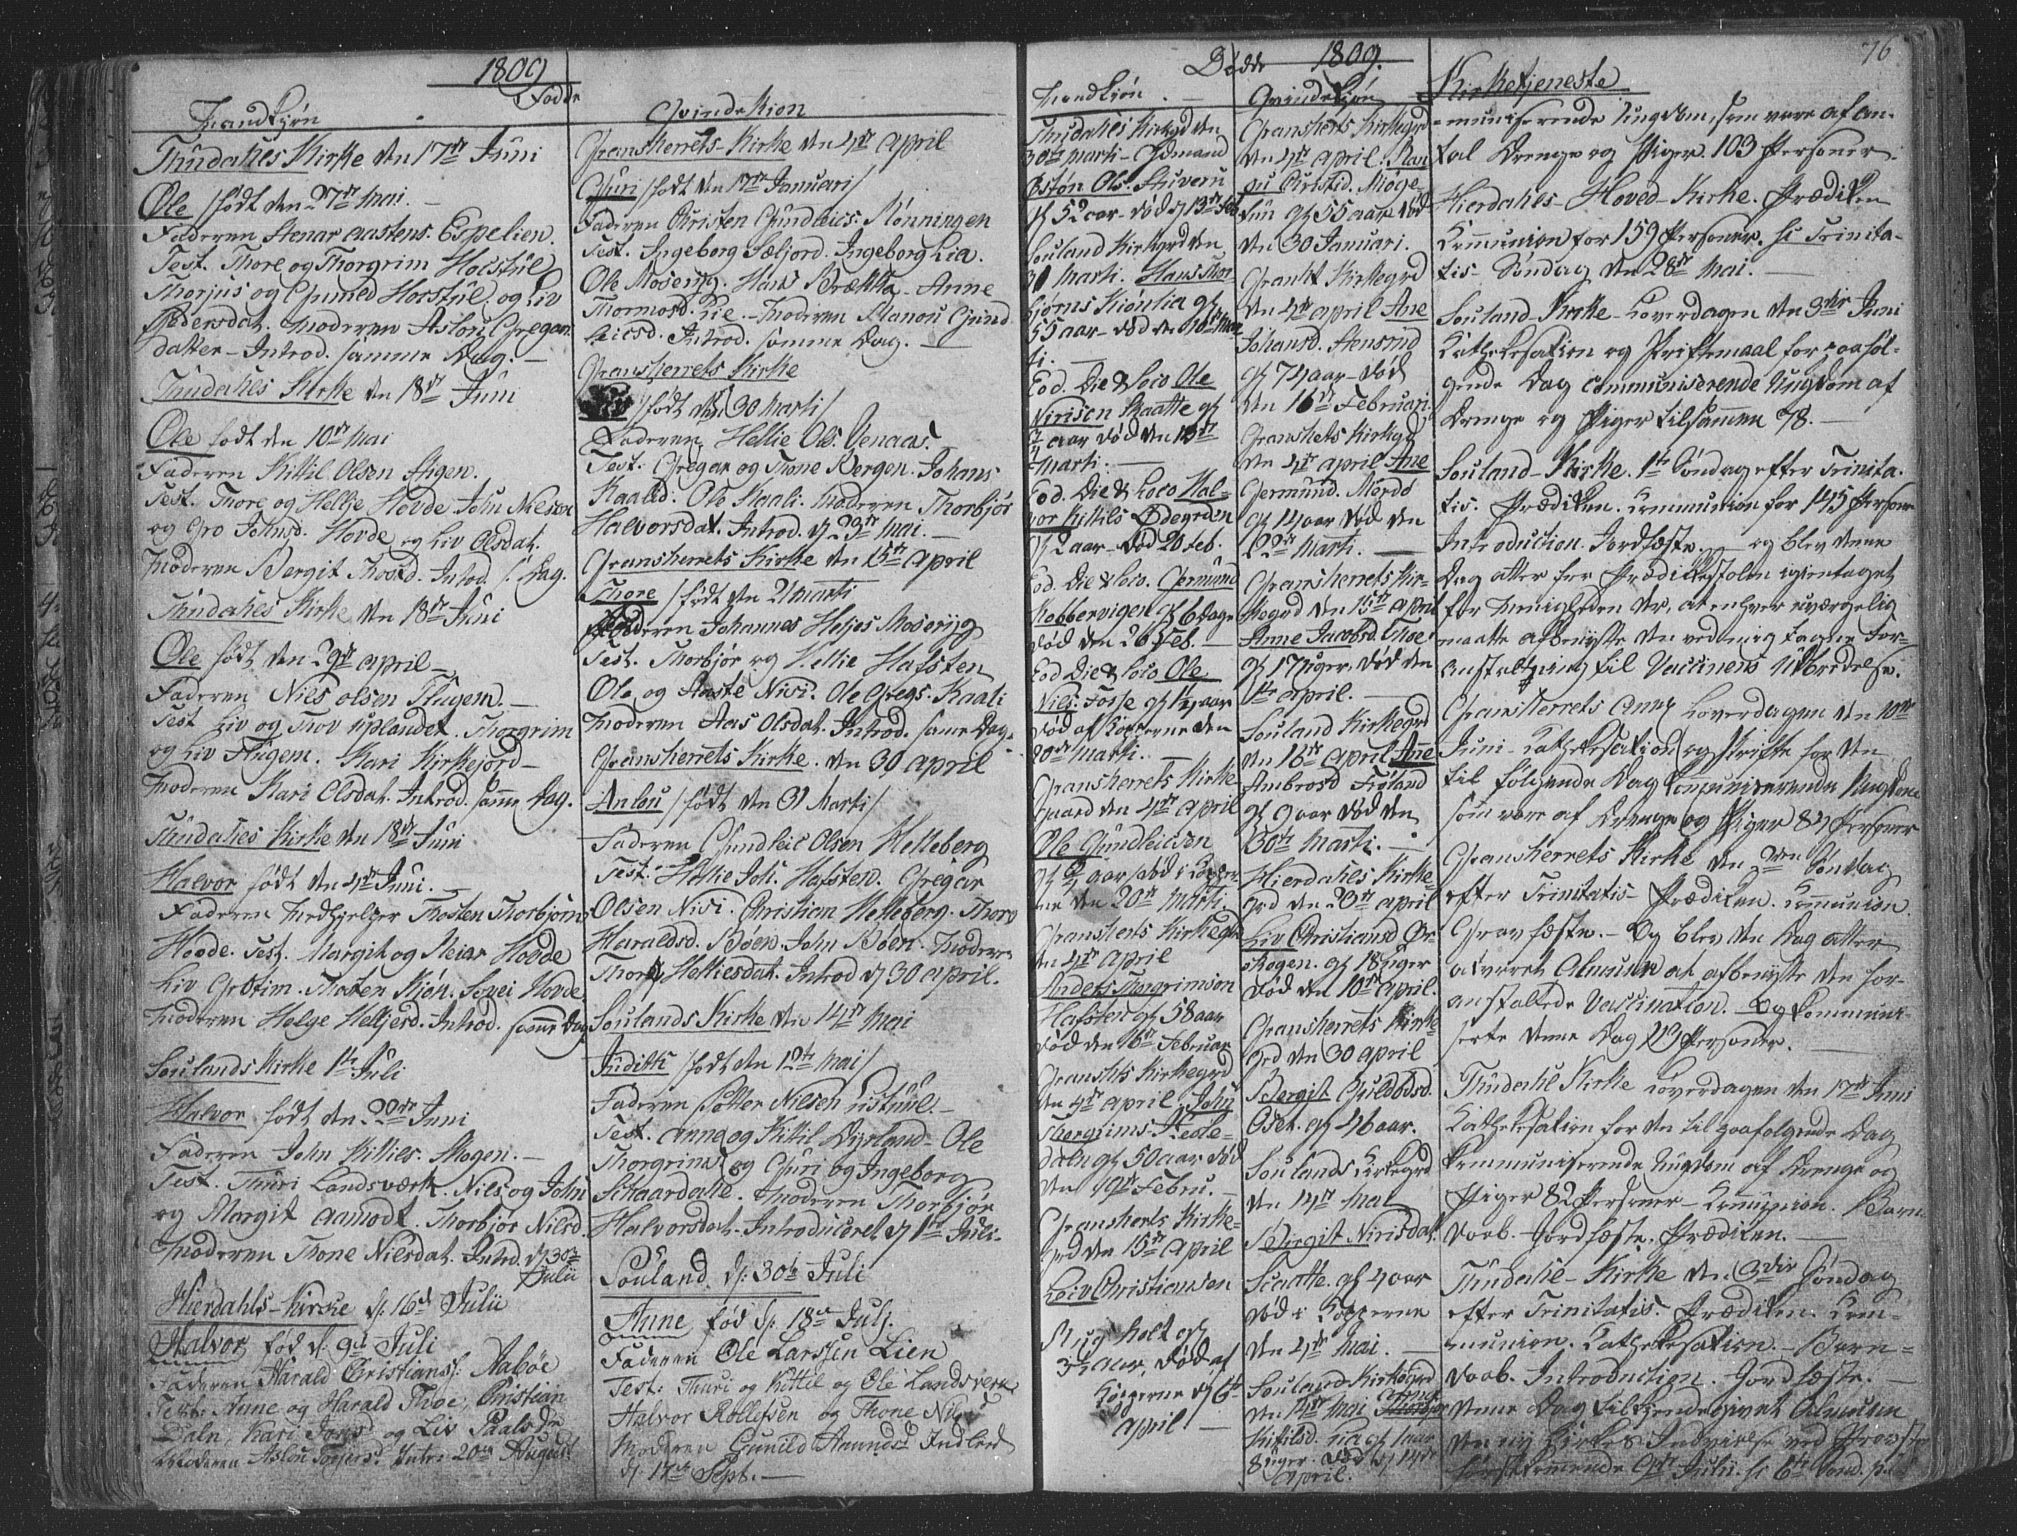 1809
Fødde
Mandkjøn
Thudahls Kirke den 17de Juni
Ole født den 27de Mai. —
Faderen Stenar Aastens. Espelien.
Test. Thore og Thorgrim Holstul
Thorjus og Gunned Horstul, og Liv
Pedersdat. Moderen Aslou Gregar
datter – Introd. samme Dag. —
Thudahls Kirke den 18de Juni
Ole født den 10de Mai
Faderen Kittil Olsen Stigen.
Test. Thore og Hellje Hovde. John Nilson
og Gro Johnsd. Hovde og Liv Olsdat.
Moderen Bergit Torsd. Introd. s. Dag.
Thudahls Kirke den 18de Juni
Ole født den 29de April –
Faderen Nils Olsen Flugem. —
Test. Liv og Thov Uplandet. Thorgrim
og Liv Flugem. Kari Kirkejord –
Moderen Kari Olsdat. Introd. samme Dag.
Thudahls Kirke den 18de Juni
Halvor født den 4de Juni. —
Faderen Medhjelper Thosten Thorbjørn
Hovde. Test. Margit og Neiar Hovde
Liv Grotim. Thosten Kjøn. Sonei Hovde
Moderen Helge Helljesd. Introd. samme Dag
Soulands Kirke 1te Juli
Halvor født den 20de Juni
Faderen John Kittils. Mogen. —
Test. Thuri Landsverk. Nils og John
og Margit Aamodt. Thorbjør Nilsd.
Moderen Thone Nilsdat. Introd. d. 30te
Julii
Hierdahls-Kirke d. 16de Julii
Halvor fød d. 9de Juli
Faderen Harald Christians. Aaboe
Test: Anne og Harald Thoe, Christian
Daln, Kari Jorisd og Liv Paalsdr
Moderen Aslou Torjersd. Intr. 20de August
Qvindekion
Gransherrets-Kirke den 4de April
Guri /født den 17de Januari/
Faderen Christen Gundleics. Rønningen
Test. Ingeborg Sæljord. Ingeborg Lia.
Ole Moserujg. Hans Brække. Anne
Thormosd. Lie. – Moderen Ranou Gund
leicsd. Introd. samme Dag. —
Gransherrets Kirke
/født den 30 Marti/
Faderen Hellie Ols. Jenaas.
Test. Gregar og Thone Bergen. Johans
Kaalid. Ole Kaali. Moderen Thorbjør
Halvorsdat. Introd. d 23de Mai. —
Gransherrets Kirke den 15de April
Thore /født den 21 Marti
Faderen Johannes Heljes. Moserujg
Test. Thorbjør og Hellie Hafsten
Ole og Aaste Nisi. Ole Gregs. Kaali
Moderen Aas Olsdat. Introd. same Dag.
Gransherrets Kirke. den 30 April
Anlou /født den 31 Marti/
Faderen Gundleic Olsen Helleberg
Test: Hellie Joh. Hafsten. Gregar
Olsen Nisi. Christian Helleberg. Thoro
Haraldsd. Bøen. John Bøen. Moderen
Thoro Helliesdat. Introd d 30 April.
Soulands Kirke den 14de Mai
Judith /født den 12te Mai/
Faderen Sotter Nilsen Ustuul. —
Test. Anne og Kittil Dysland – Ole
Thorgrims og Guri og Ingeborg
Schaardalle. Moderen Thorbjør
Halvorsdat. Introduceret d 1te Juli.
Souland. d. 30te Juli
Anne fød d. 18de Julj.
Faderen Ole Larssen Lien
Test: Thuri og Kittil og Ole Landsverk
Halvor Rollefsen og Thone Nilsd
Moderen Gunild Aamunds. Indled
d. 17de Sept. —
Døde 1809.
Mandkjøn
Thudahls Kirkegd den
30te Marti – Edmand
Østøn Ols. Stuveru
gl 52 aar død d 13de Feb
Souland Kirkegd den
30 Marti. Hans Thor
bjørns Kiontia gl
55 aar – død den 10de Mar
ti. —
Eod. Die & loco Ole
Nirisen Skaatte gl
aar død den 13de
Marti. —
Eod. Die & loco Hal-
vor Kittils Ødegrden
gl 2 aar – død 20 Feb.
Eod. Die & loco. Germund
Kobbervigen gl 6 Dage
død den 26 Feb. —
Eod Die & loco Ole
Nils. Fosse gl 1½ aar
død af Kopperne den
20de Marti. —
Gransherrets Kirke
gaard den 4de April
Ole Gundleicsen
gl aar død i Kopper
ne den 20de Marti.
Gransherts Kirkegrd
den 4de April
Anders Thorgrimson
Hafsten gl 58 aar
død den 16de Februar
Gransh̅ts Kirkegrd
den 4de April. John
Thorgrims. Hesle-
dalen gl 50 aar død
den 19de Febru. —
Gransherts Kirke-
grd den 15de April
Leiv Christiansen
Skugholt gl
3½ aar, død af
Kopperne d 6te
April —
Qvindekjøn
Gransherts Kirkegrd
den 4de April. Ran
gu Christid. Møge-
tun gl 55 aar død
den 30 Januari.
Gransht Kirkegrd
den 4de April Ane
Johansd. Stensrud
gl 74 aar – død
den 16de Februari.
Gransherts Kirkegd
den 4de April Ane
Germund. Merdø
gl 14 aar død den
22de Marti. —
Gransherrets Kir-
kegrd den 15de April
Anne Jacobsd Thoe
gl 17 Uger. død den
1te April. —
Souland Kirkegrd
den 16de April Ane
Ambrosd Frøland
gl 9 aar død den
30te Marti. —
Hierdahls Kirke-
grd den 23de April
Liv Christiansd Ør-
skogen. gl 18 Uger
død den 10de April.
Gransherrets Kirke
grd den 30 April
Bergit Guldbdsd.
Oset. gl 46 aar.
Soulands Kirkegrd
den 14de Mai
Bergit Nirisdat.
Scaatte. gl 4 aar
død i Kopperne
den 4de Mai. —
Souland Kirkegrd
den 14de Mai
Kittilsd. Lia gl 1 aar
8 Uger. død d 14de
April.
76
Kirketjeneste
-muniserende Ungdom, som vare af An-
tal Drenge og Piger. 103 Personer.
Hierdahls Hoved-Kirke. Prædiken
Communion for 159 Personer. sc Trinita-
tis-Søndag den 28de Mai. —
Souland-Kirke – Løverdagen den 3die Juni
Cathekesation og Skriftemaal for paaføl-
gende Dag communiserende Ungdom af
Drenge og Piger tilsammen 78. —
Souland-Kirke. 1te Søndag efter Trinita.
tis. Prædiken. Communion for 145 Personer
Introduction. Jordfæste. — og blev denne
Dag atter fra Prædikestolen igientaget
for Menigheden der, at enhver uværgelig
maatte afbenytte den ved mig tagne For-
anstaltning til Vaccinens Udbredelse.
Gransherrets Annx Løverdagen den 10de
Juni – Cathekesation og Skrifte for den
til følgende Dag Communiserende Ungdom
som vare af Drenge og Piger 87 Personer
Gransherrets Kirke den 2den Søndag
efter Trinitatis – Prædiken. Communion.
Gravfæste. – Og blev den Dag atter
advaret Almuen at afbenytte den for-
anstaltede Vaccination. Og Communi-
serte denne Dag 113 Personer. —
Thudahls Kirke Løverdagen den 17de Juni
Cathekesation for den til paafølgende Dag
Communiserende Ungdom af Drenge og
Piger 82 Personer – Communion. Barn
daab. Jordfæste. Prædiken. —
Thudahls-Kirke den 3die Søndag
efter Trinitatis. Prædiken. Com-
munion. Cathekesation. – Barn-
daab. Introduction. Jordfæste. —
Denne Dag tilkiendegivet Almuen
den ny Kirkes Indvielse ved Provsten
førstkommende 9de Julii sc 6te Sønd. p.